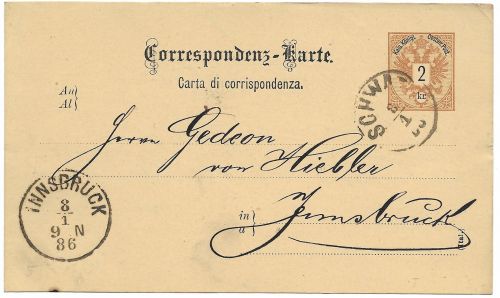 Correspondenz-Karte.
Carta di corrispondenza.
Kais. Königl. Oesterr. Post.
2
kr.
SCHWA
8
1
An
Al
Herrn Gedeon
von Hiebler
in
a
Innsbruck
(Ital.)
INNSBRUCK
8
1
9 N
86